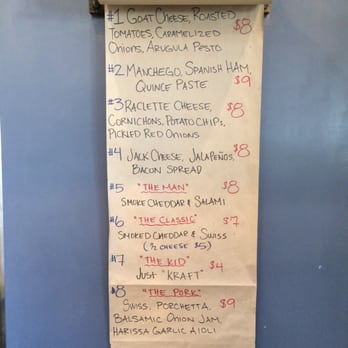 #1 GOAT CHEESE, ROASTED
TOMATOES, CARAMELIZED $8
ONIONS, ARUGULA PESTO
#2 MANCHEGO, SPANISH HAM,
QUINCE PASTE $9
#3 RACLETTE CHEESE,
CORNICHONS, POTATO CHIPS, $8
PICKLED RED ONIONS
#4 JACK CHEESE, JALAPEÑOS, $8
BACON SPREAD
#5 "THE MAN" $8
SMOKE CHEDDAR & SALAMI
#6 "THE CLASSIC" $7
SMOKED CHEDDAR & SWISS
(1/2 CHEESE $5)
#7 "THE KID" $4
JUST "KRAFT"
#8 "THE PORK"
SWISS, PORCHETTA, $9
BALSAMIC ONION JAM,
HARISSA GARLIC AIOLI